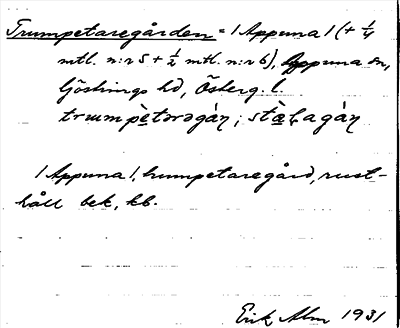 Trumpetaregården = 1 Appuna 1 (+ 1/4
mtl. n:r 5 + 1/2 mtl. n:r 6), Appuna sn,
Göstrings hd, Österg. l.
trumpètərəgán; stạ̀lagáṇ
1 Appuna 1, trumpetaregård, rust-
håll bek, kb.
Erik Alm 1931